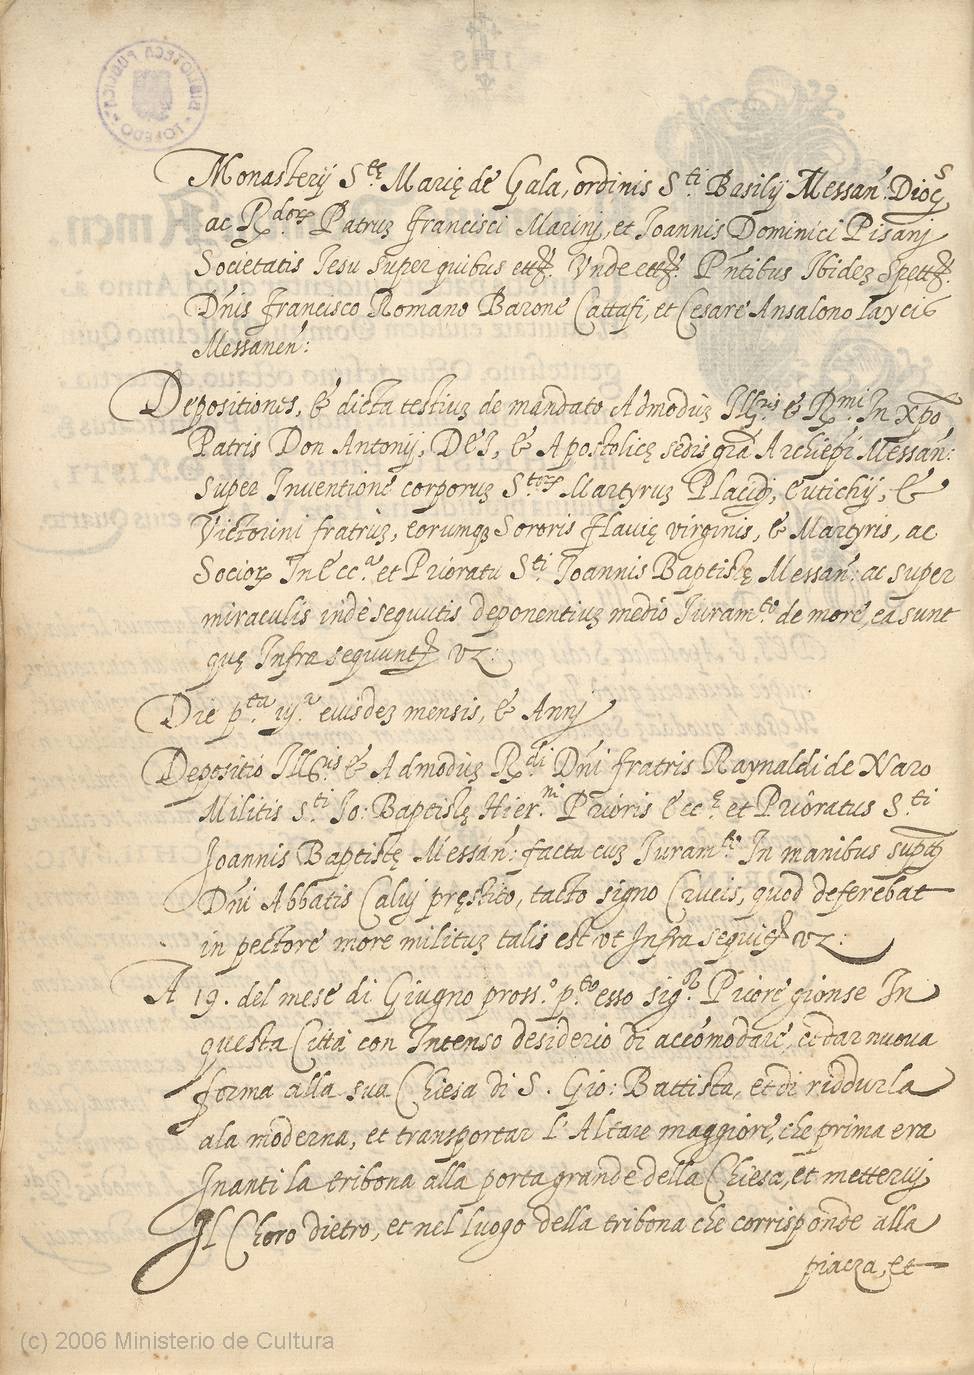 Monasterij S.te Marię de Gala, ordinis S.ti Basilij Messan: Dioc.s
ac R.dor Patruz francisci Marinj, et Joannis Dominici Pisanj
Societatis Iesu super quibus Vnde Pñtibus Ibidez Spett
Dñis francisco Romano Barone Cattafi, et Cesare Ansalono Iayci6
Messanen:
Depositiones, & dicta testiuz de mandato Admoduz Ill.ris & R.mi In xpõ
Patris Don Antonij, DEI, & Apostolicę sedis grã Archiepĩ Messan:
super Inventione corporuz S.tor Martyruz Placidj, Eutichij, &
Victorini fratruz, eorumq3 Sororis flauię virginis, & Martyris, ac
Socior In Ecc.a et Prioratu S.ti Joannis Baptistę Messan: ac super
miraculis indè sequutis deponentiuz medio Iuram.to de more, ea sunt
quę Infra sequunt vz:
Die p.tu eiusdez mensis, & Annj
Depositio Ill.ris & Admoduz R.di Dñi fratris Raynaldi de Naro
Militis S.ti Io: Baptistę Hier.ni Prioris Ecc.ę et Prioratus S.ti
Joannis Baptistę Messan: facta cuz Iuram.to In manibus
Dñi Abbatis Caluj pręstito, tacto signo Crucis, quod deferebat
in pectore more milituz talis est vt Infra sequit vz:
A 19. del mese di Giugno pross.o p.to esso sig.r Priore gionse In
questa Città con Intenso desiderio di accomodare, et dar nuova
forma alla sua Chiesa di S. Gio: Battista, et di riddurla
ala moderna, et transportar L'Altare maggiore, che prima era
Inanti la tribona alla porta grande della Chiesa, et metteruj
Il Choro dietro, et nel luogo della tribona che corrisponde alla
piazza, et
BIBLIOTECA PUBLICA TOLEDO
IHS
(c) 2006 Ministerio de Cultura